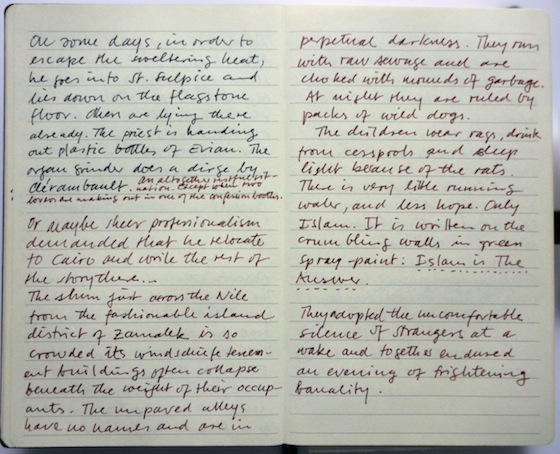 On some days, in order to
escape the sweltering heat,
he goes into St. Sulpice and
lies down on the flagstone
floor. Others are lying there
already. The priest is handing
out plastic bottles of Evian. The
organ grinder does a dirge by
Clérambault. An altogether restful sit-
uation. Except when two
lovers are making out in one of the confession booths.
Or maybe sheer professionalism
demanded that he relocate
to Cairo and write the rest of
the story there...
The slum just across the Nile
from the fashionable island
district of Zamalek is so
crowded its windscliffe tenem-
ent buildings often collapse
beneath the weight of their occup-
ants. The unpaved alleys
have no names and are in
perpetual darkness. They run
with raw sewage and are
choked with mounds of garbage.
At night they are ruled by
packs of wild dogs.
The children wear rags, drink
from cesspools and sleep
light because of the rats.
There is very little running
water, and less hope. Only
Islam. It is written on the
crumbling walls in green
spray-paint: Islam is The
Answer.
They adopted the uncomfortable
silence of strangers at a
wake and together endured
an evening of frightening
banality.